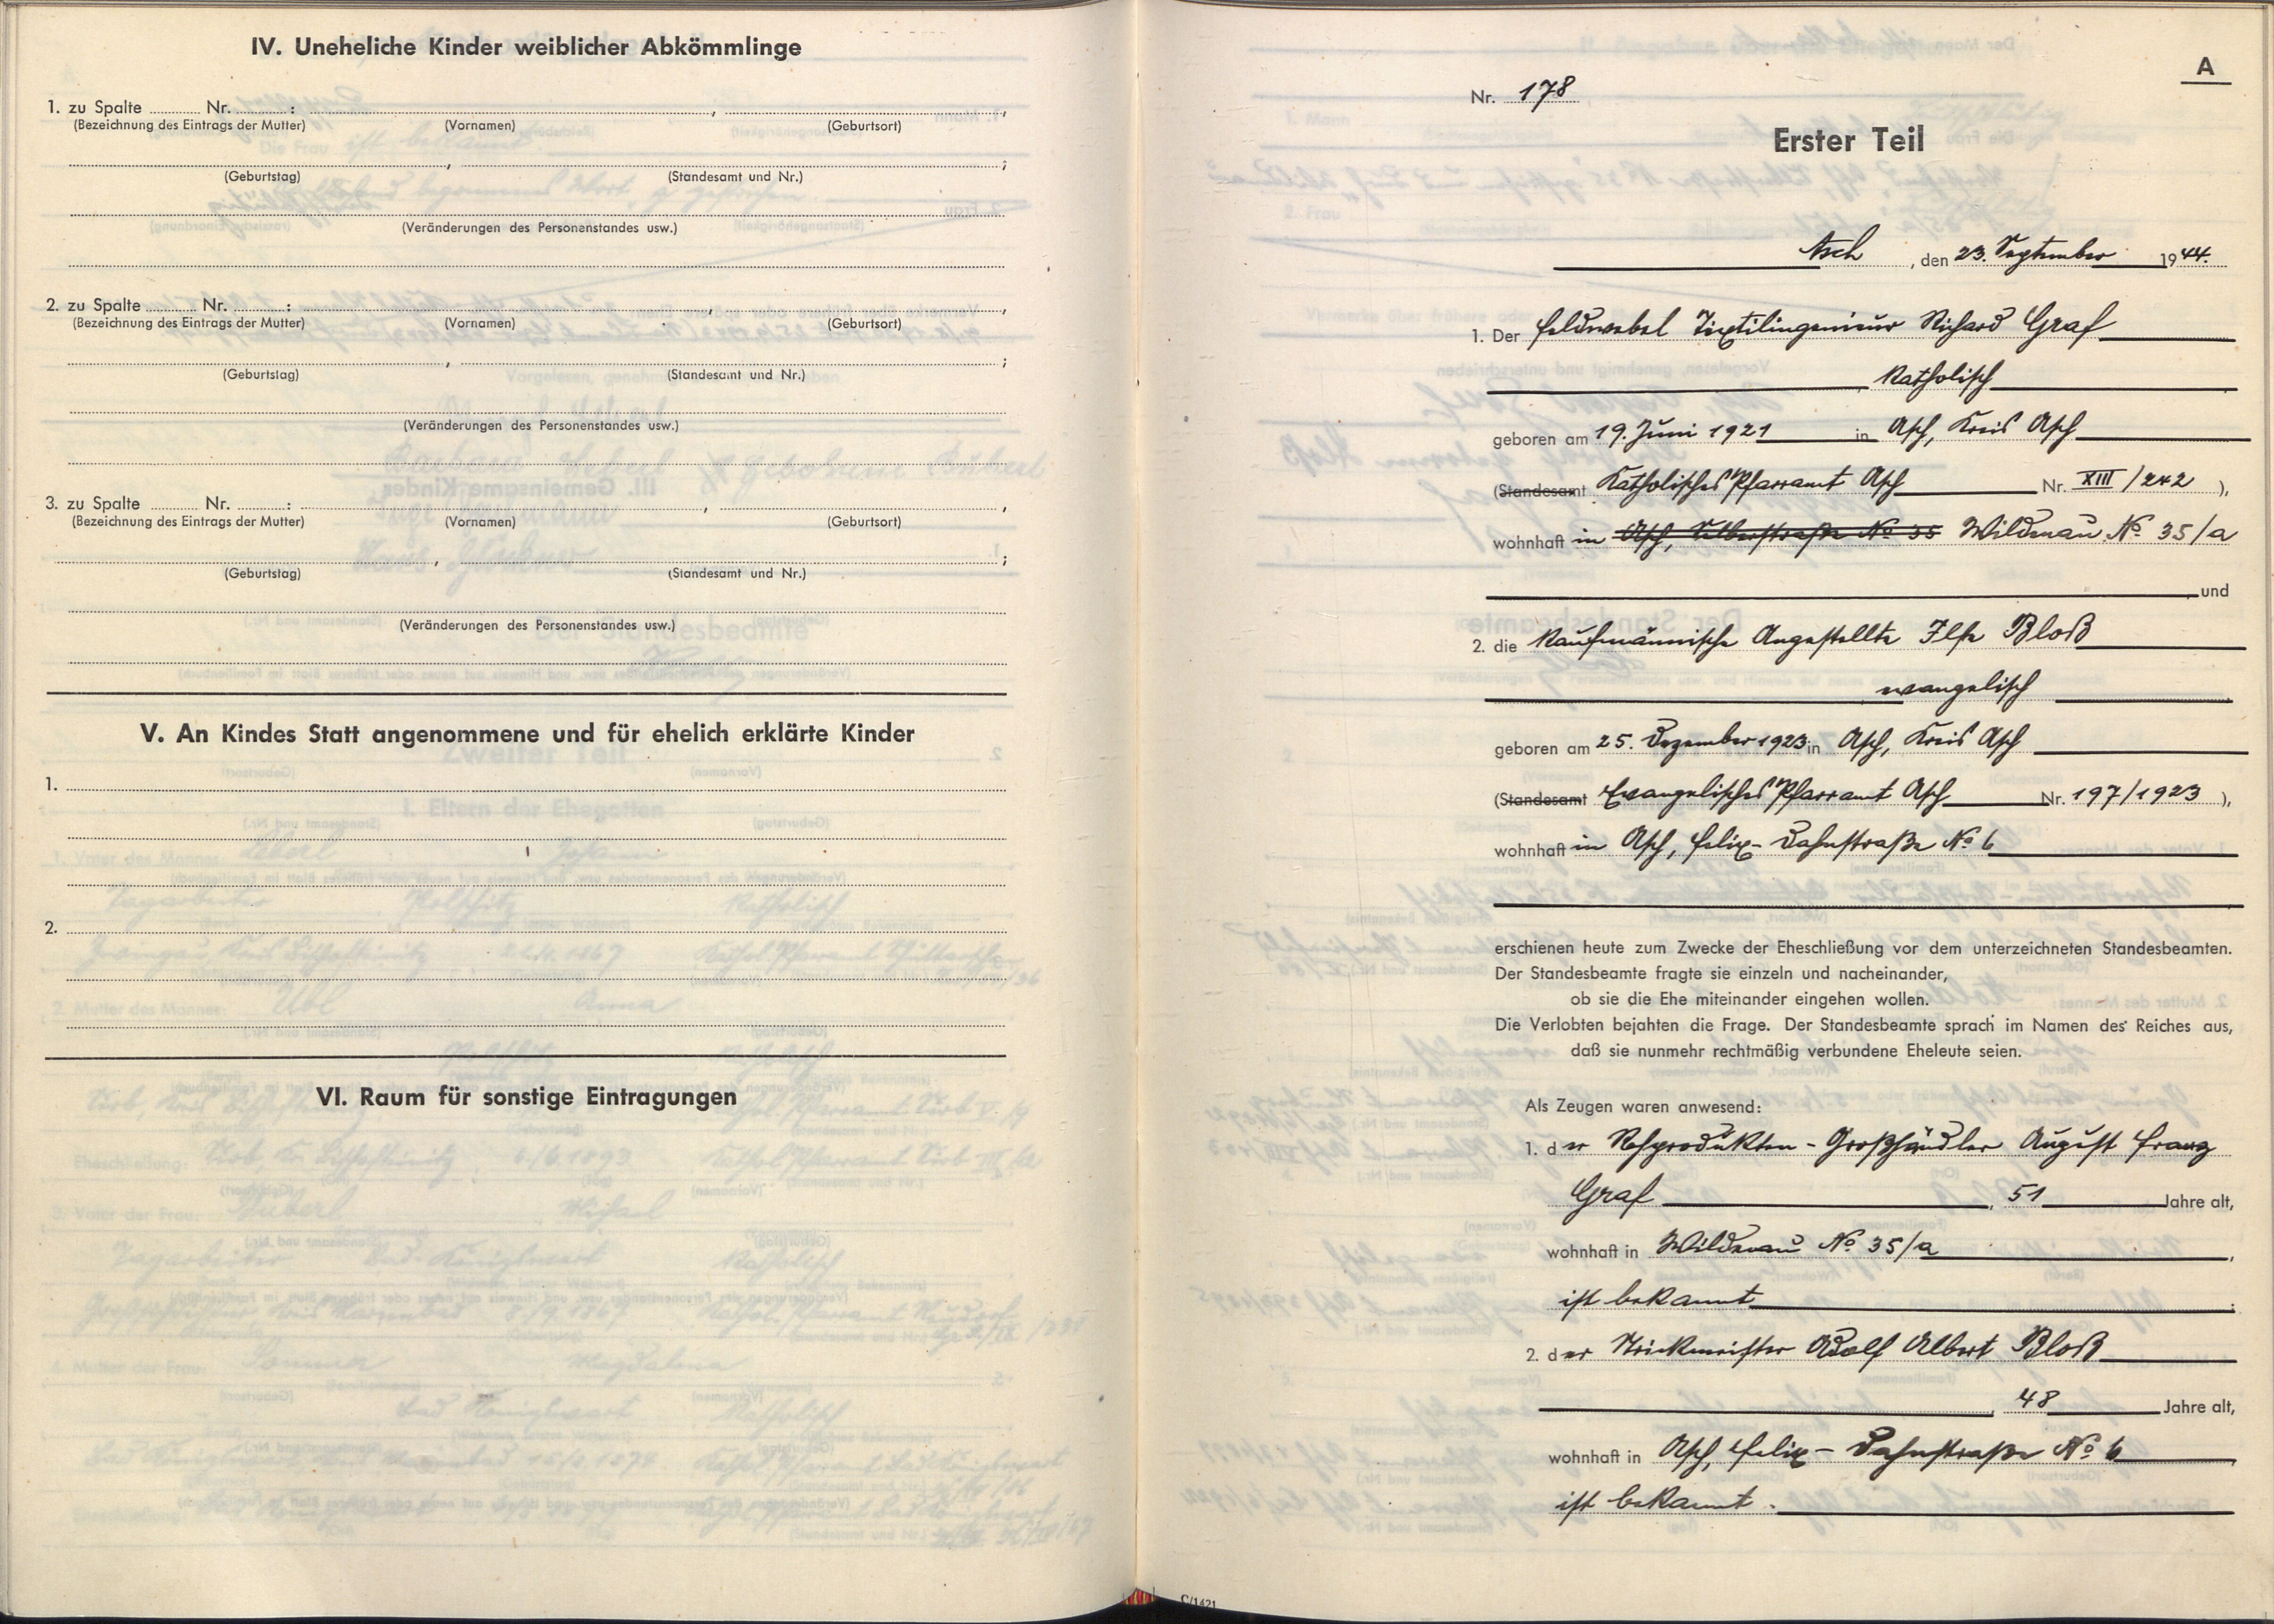 IV. Uneheliche Kinder weiblicher Abkömmlinge
1. zu Spalte ........ Nr. ........ : ........ , ........ ,
(Bezeichnung des Eintrags der Mutter) (Vornamen) (Geburtsort)
(Geburtstag) (Standesamt und Nr.)
(Veränderungen des Personenstandes usw.)
2. zu Spalte ........ Nr. ........ : ........ , ........ ,
(Bezeichnung des Eintrags der Mutter) (Vornamen) (Geburtsort)
(Geburtstag) (Standesamt und Nr.)
(Veränderungen des Personenstandes usw.)
3. zu Spalte ........ Nr. ........ : ........ , ........ ,
(Bezeichnung des Eintrags der Mutter) (Vornamen) (Geburtsort)
(Geburtstag) (Standesamt und Nr.)
(Veränderungen des Personenstandes usw.)
V. An Kindes Statt angenommene und für ehelich erklärte Kinder
1.
2.
VI. Raum für sonstige Eintragungen
A
Nr. 178
Erster Teil
Asch, den 23. September 1944.
1. Der Feldwebel Textilingenieur Richard Graf
katholisch
geboren am 19. Juni 1921 in Asch, Kreis Asch
(Standesamt Katholisches Pfarramt Asch Nr. XIII/242),
wohnhaft in Asch, Selberstraße No 35 Wildenau No 35/a
und
2. die kaufmännische Angestellte Ilse Bloß
evangelisch
geboren am 25. Dezember 1923 in Asch, Kreis Asch
(Standesamt Evangelisches Pfarramt Asch Nr. 197/1923),
wohnhaft in Asch, Felix-Dahnstraße No 6
erschienen heute zum Zwecke der Eheschließung vor dem unterzeichneten Standesbeamten.
Der Standesbeamte fragte sie einzeln und nacheinander,
ob sie die Ehe miteinander eingehen wollen.
Die Verlobten bejahten die Frage. Der Standesbeamte sprach im Namen des Reiches aus,
daß sie nunmehr rechtmäßig verbundene Eheleute seien.
Als Zeugen waren anwesend:
1. der Rohprodukten-Großhändler August Franz
Graf, 51 Jahre alt,
wohnhaft in Wildenau No 35/a,
ist bekannt.
2. der Strickmeister Adolf Albert Bloß
, 48 Jahre alt,
wohnhaft in Asch, Felix-Dahnstraße No 6,
ist bekannt.
C/1421